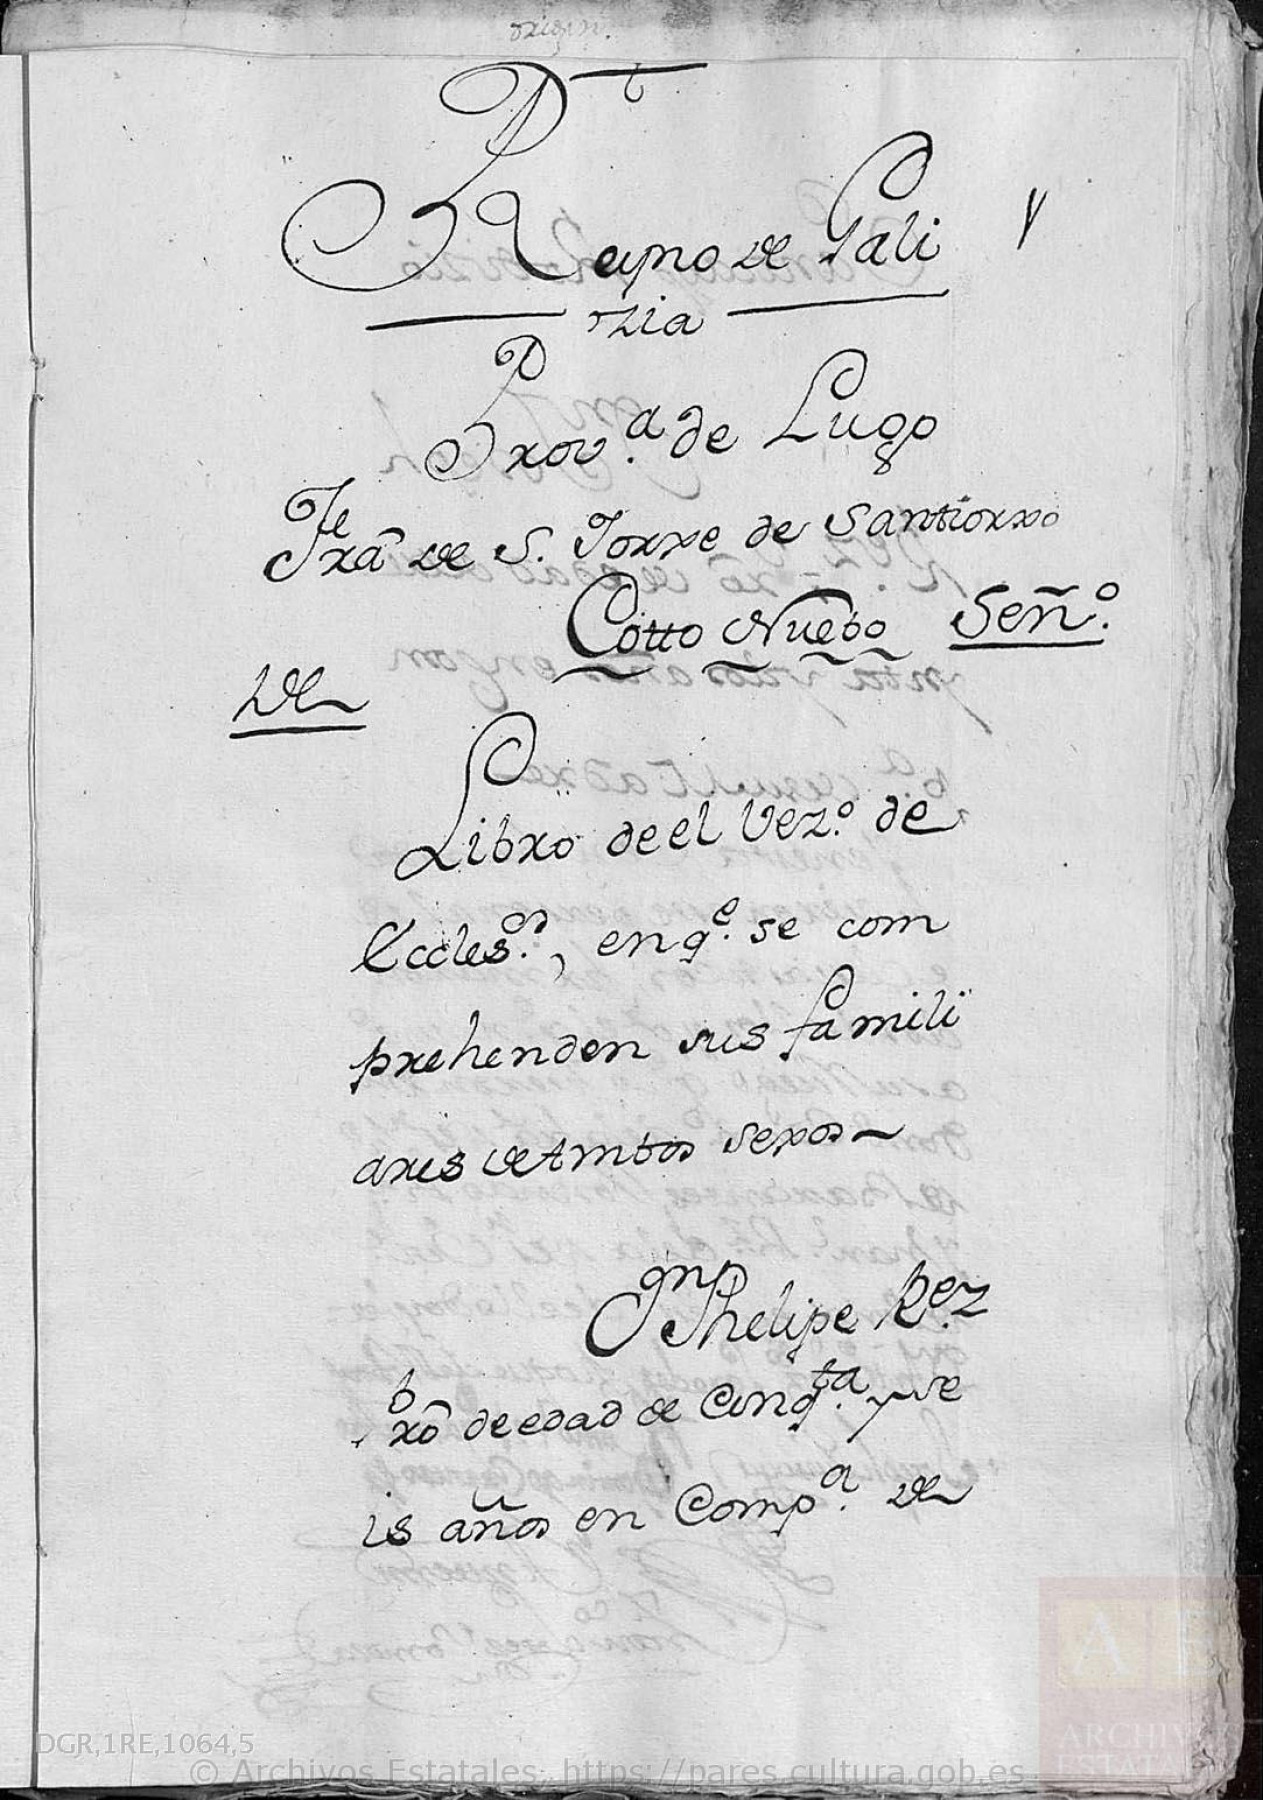 origin.
t
Reyno de Gali
zia
Prov.ª de Lugo
Fe
xã de S. Jorxe de Santiorxo
Cotto Nuebo Señ.º
de
Libxo de el Vez.º de
Eccles.os, en q.e se com
prehenden sus famili
axes de Ambos sexos~
Phelipe R.ez
b
xõ de edad de Cinq.ta y se
is años en Comp.ª de
DGR,1RE,1064,5
© Archivos Estatales, https://pares.cultura.gob.es
ARCHIVOS
ESTATALES